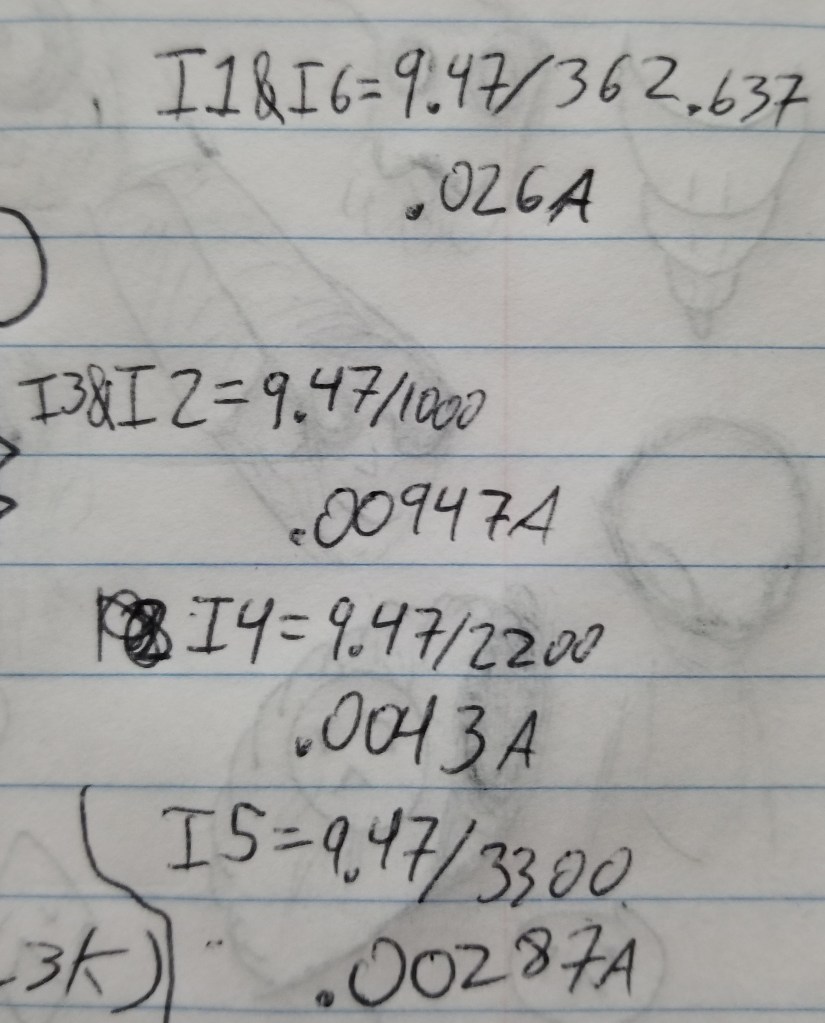 I1&I6=9.47/362.637
.026A
I3&I2=9.47/1000
.00947A
I4=9.47/2200
.0043A
I5=9.47/3300
.00287A
3K)